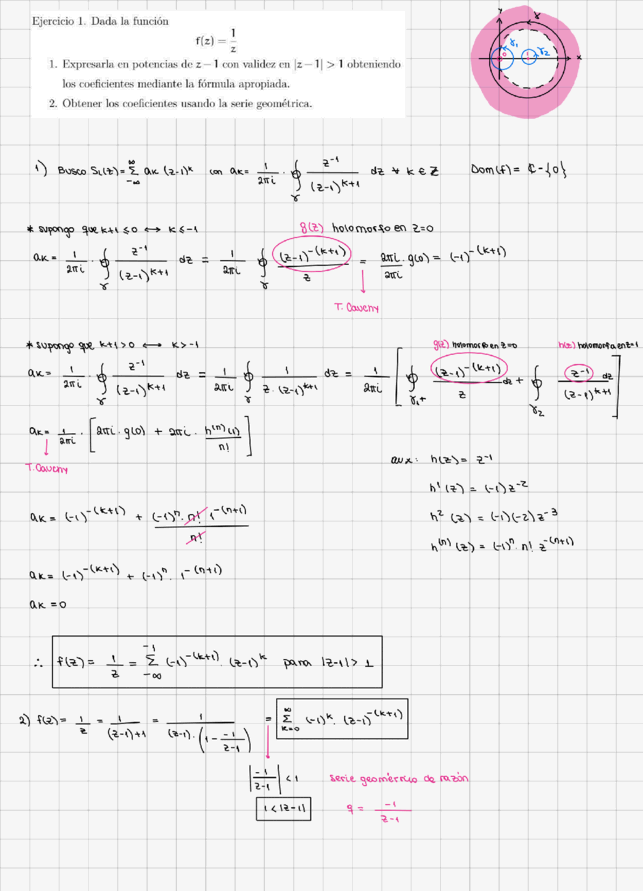 Ejercicio 1. Dada la función
f(z) = 1/z
1. Expresarla en potencias de z − 1 con validez en |z − 1| > 1 obteniendo
los coeficientes mediante la fórmula apropiada.
2. Obtener los coeficientes usando la serie geométrica.
y
γ
γ1
γ2
0
1
x
1) Busco SL(z) = ∑_{-∞}^{∞} ak (z-1)^k con ak = 1/(2πi) · ∮_γ z^{-1}/(z-1)^{k+1} dz ∀ k ∈ Z Dom(f) = ℂ-{0}
* supongo que k+1 ≤ 0 ⟷ k ≤ -1 g(z) holomorfo en z=0
ak = 1/(2πi) · ∮_γ z^{-1}/(z-1)^{k+1} dz = 1/(2πi) ∮_γ (z-1)^{-(k+1)}/z = 2πi/2πi · g(0) = (-1)^{-(k+1)}
T. Cauchy
* supongo que k+1 > 0 ⟷ k > -1 g(z) holomorfo en z=0 h(z) holomorfa en z=1
ak = 1/(2πi) · ∮_γ z^{-1}/(z-1)^{k+1} dz = 1/(2πi) ∮_γ 1/(z·(z-1)^{k+1}) dz = 1/(2πi) [ ∮_γ1+ (z-1)^{-(k+1)}/z dz + ∮_γ2 z^{-1}/(z-1)^{k+1} dz ]
ak = 1/(2πi) · [ 2πi · g(0) + 2πi · h^{(n)}(1)/n! ]
T. Cauchy
aux: h(z) = z^{-1}
h^1(z) = (-1) z^{-2}
h^2(z) = (-1)(-2) z^{-3}
h^{(n)}(z) = (-1)^n · n! z^{-(n+1)}
ak = (-1)^{-(k+1)} + (-1)^n · n! · 1^{-(n+1)}/n!
ak = (-1)^{-(k+1)} + (-1)^n · 1^{-(n+1)}
ak = 0
∴ f(z) = 1/z = ∑_{-∞}^{-1} (-1)^{-(k+1)} · (z-1)^k para |z-1| > 1
2) f(z) = 1/z = 1/((z-1)+1) = 1/((z-1)·(1 - -1/(z-1))) = ∑_{k=0}^{∞} (-1)^k · (z-1)^{-(k+1)}
|-1/(z-1)| < 1 serie geométrica de razón
1 < |z-1| q = -1/(z-1)